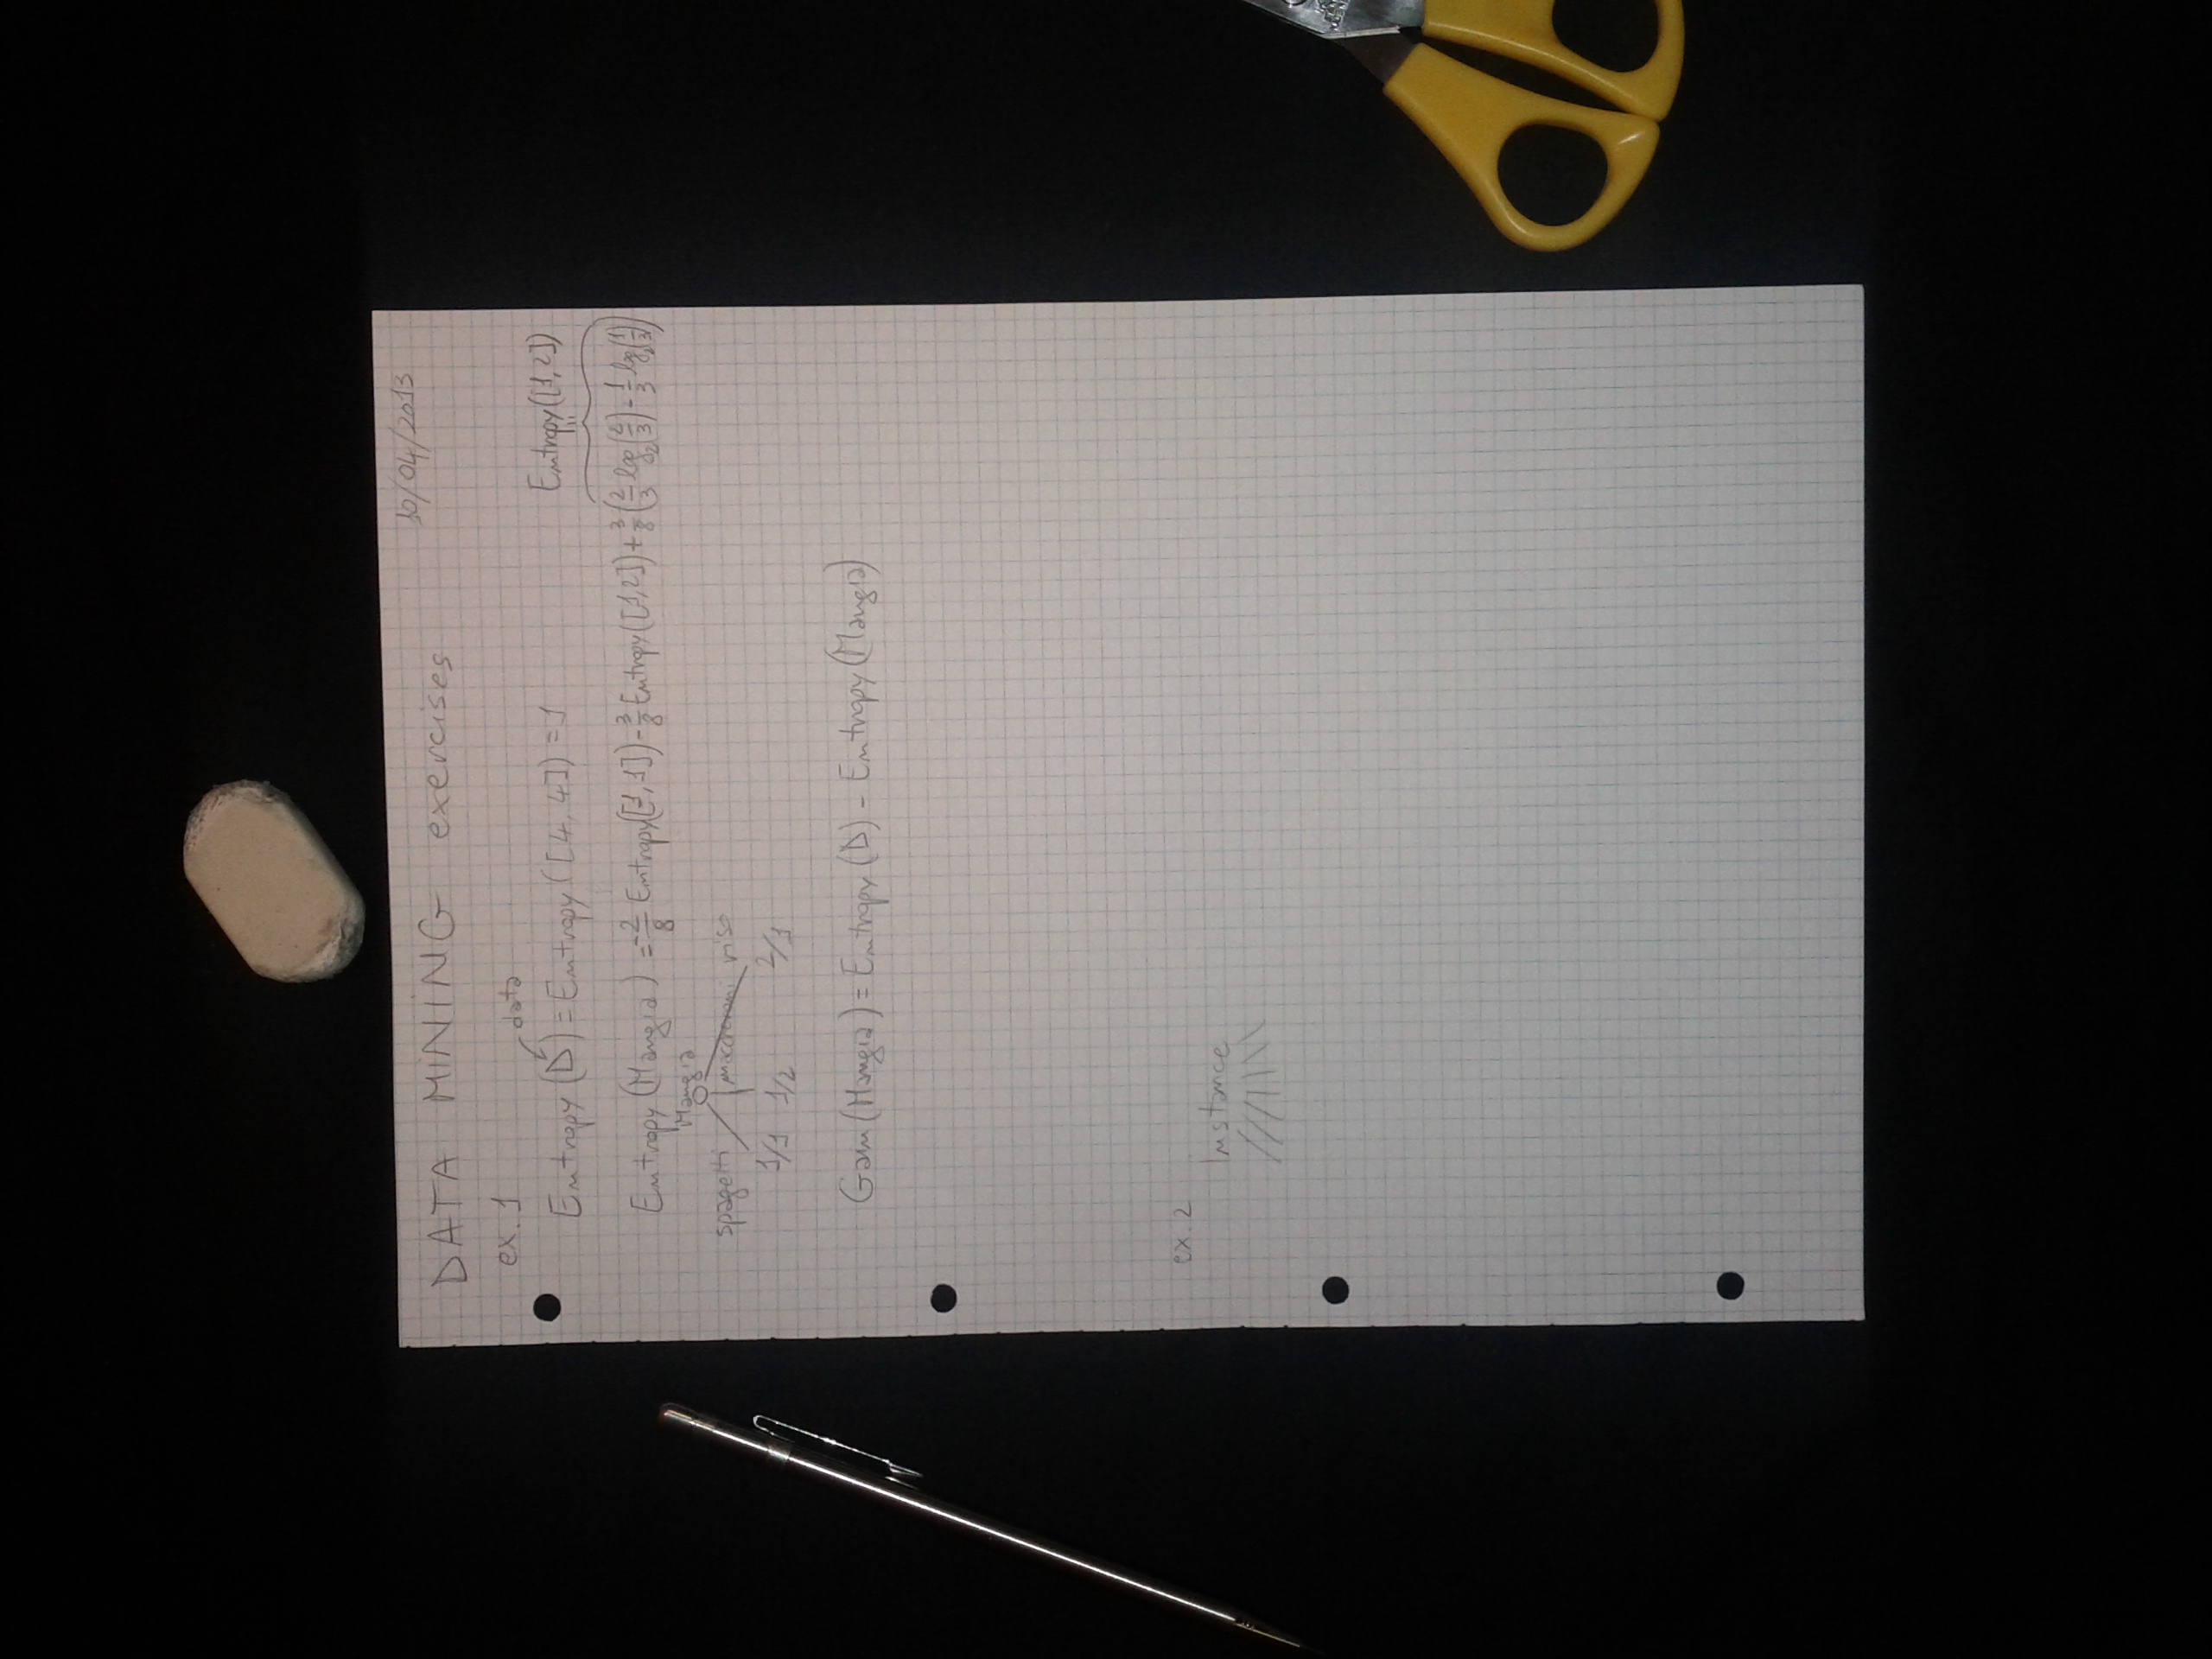 DATA MINING exercises 10/04/2013
ex. 1 data
Entropy (D) = Entropy ([4,4]) = 1 Entropy([1,2])
Entropy (Mangia) = -2/8 Entropy([1,1]) - 3/8 Entropy([1,2]) + 3/8 (2/3 log₂(2/3) - 1/3 log₂(1/3))
Mangia
spagetti maccheroni riso
1/1 1/2 2/1
Gain(Mangia) = Entropy (D) - Entropy (Mangia)
ex. 2
Instance